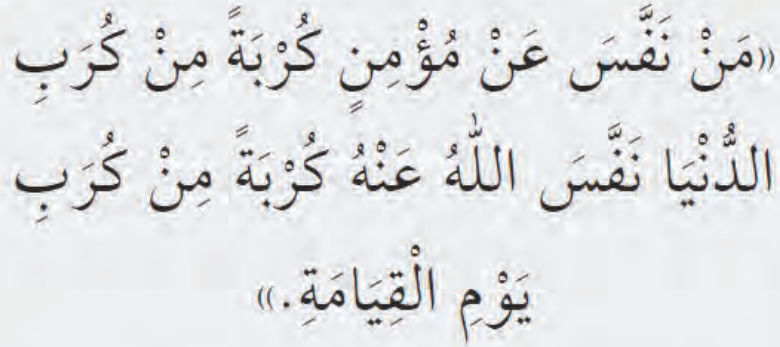 «مَنْ نَفَّسَ عَنْ مُؤْمِنٍ كُرْبَةً مِنْ كُرَبِ
الدُّنْيَا نَفَّسَ اللّٰهُ عَنْهُ كُرْبَةً مِنْ كُرَبِ
يَوْمِ الْقِيَامَةِ.»